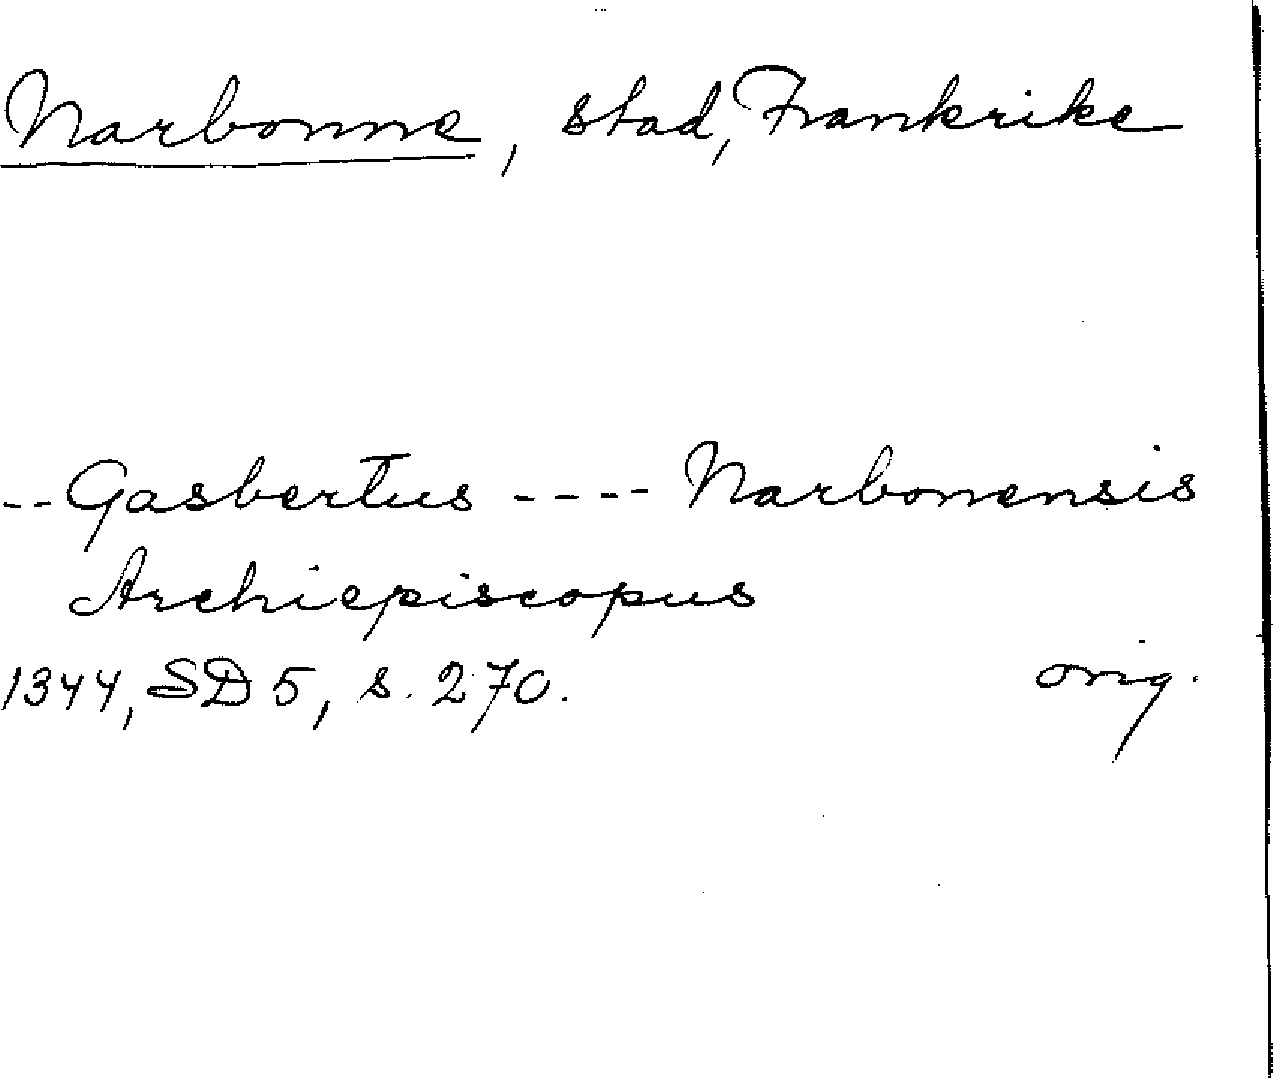 Narbonne, stad, Frankrike
-- Gasbertus ---- Narbonensis
Archiepiscopus
1344, SD 5, s. 270. orig.